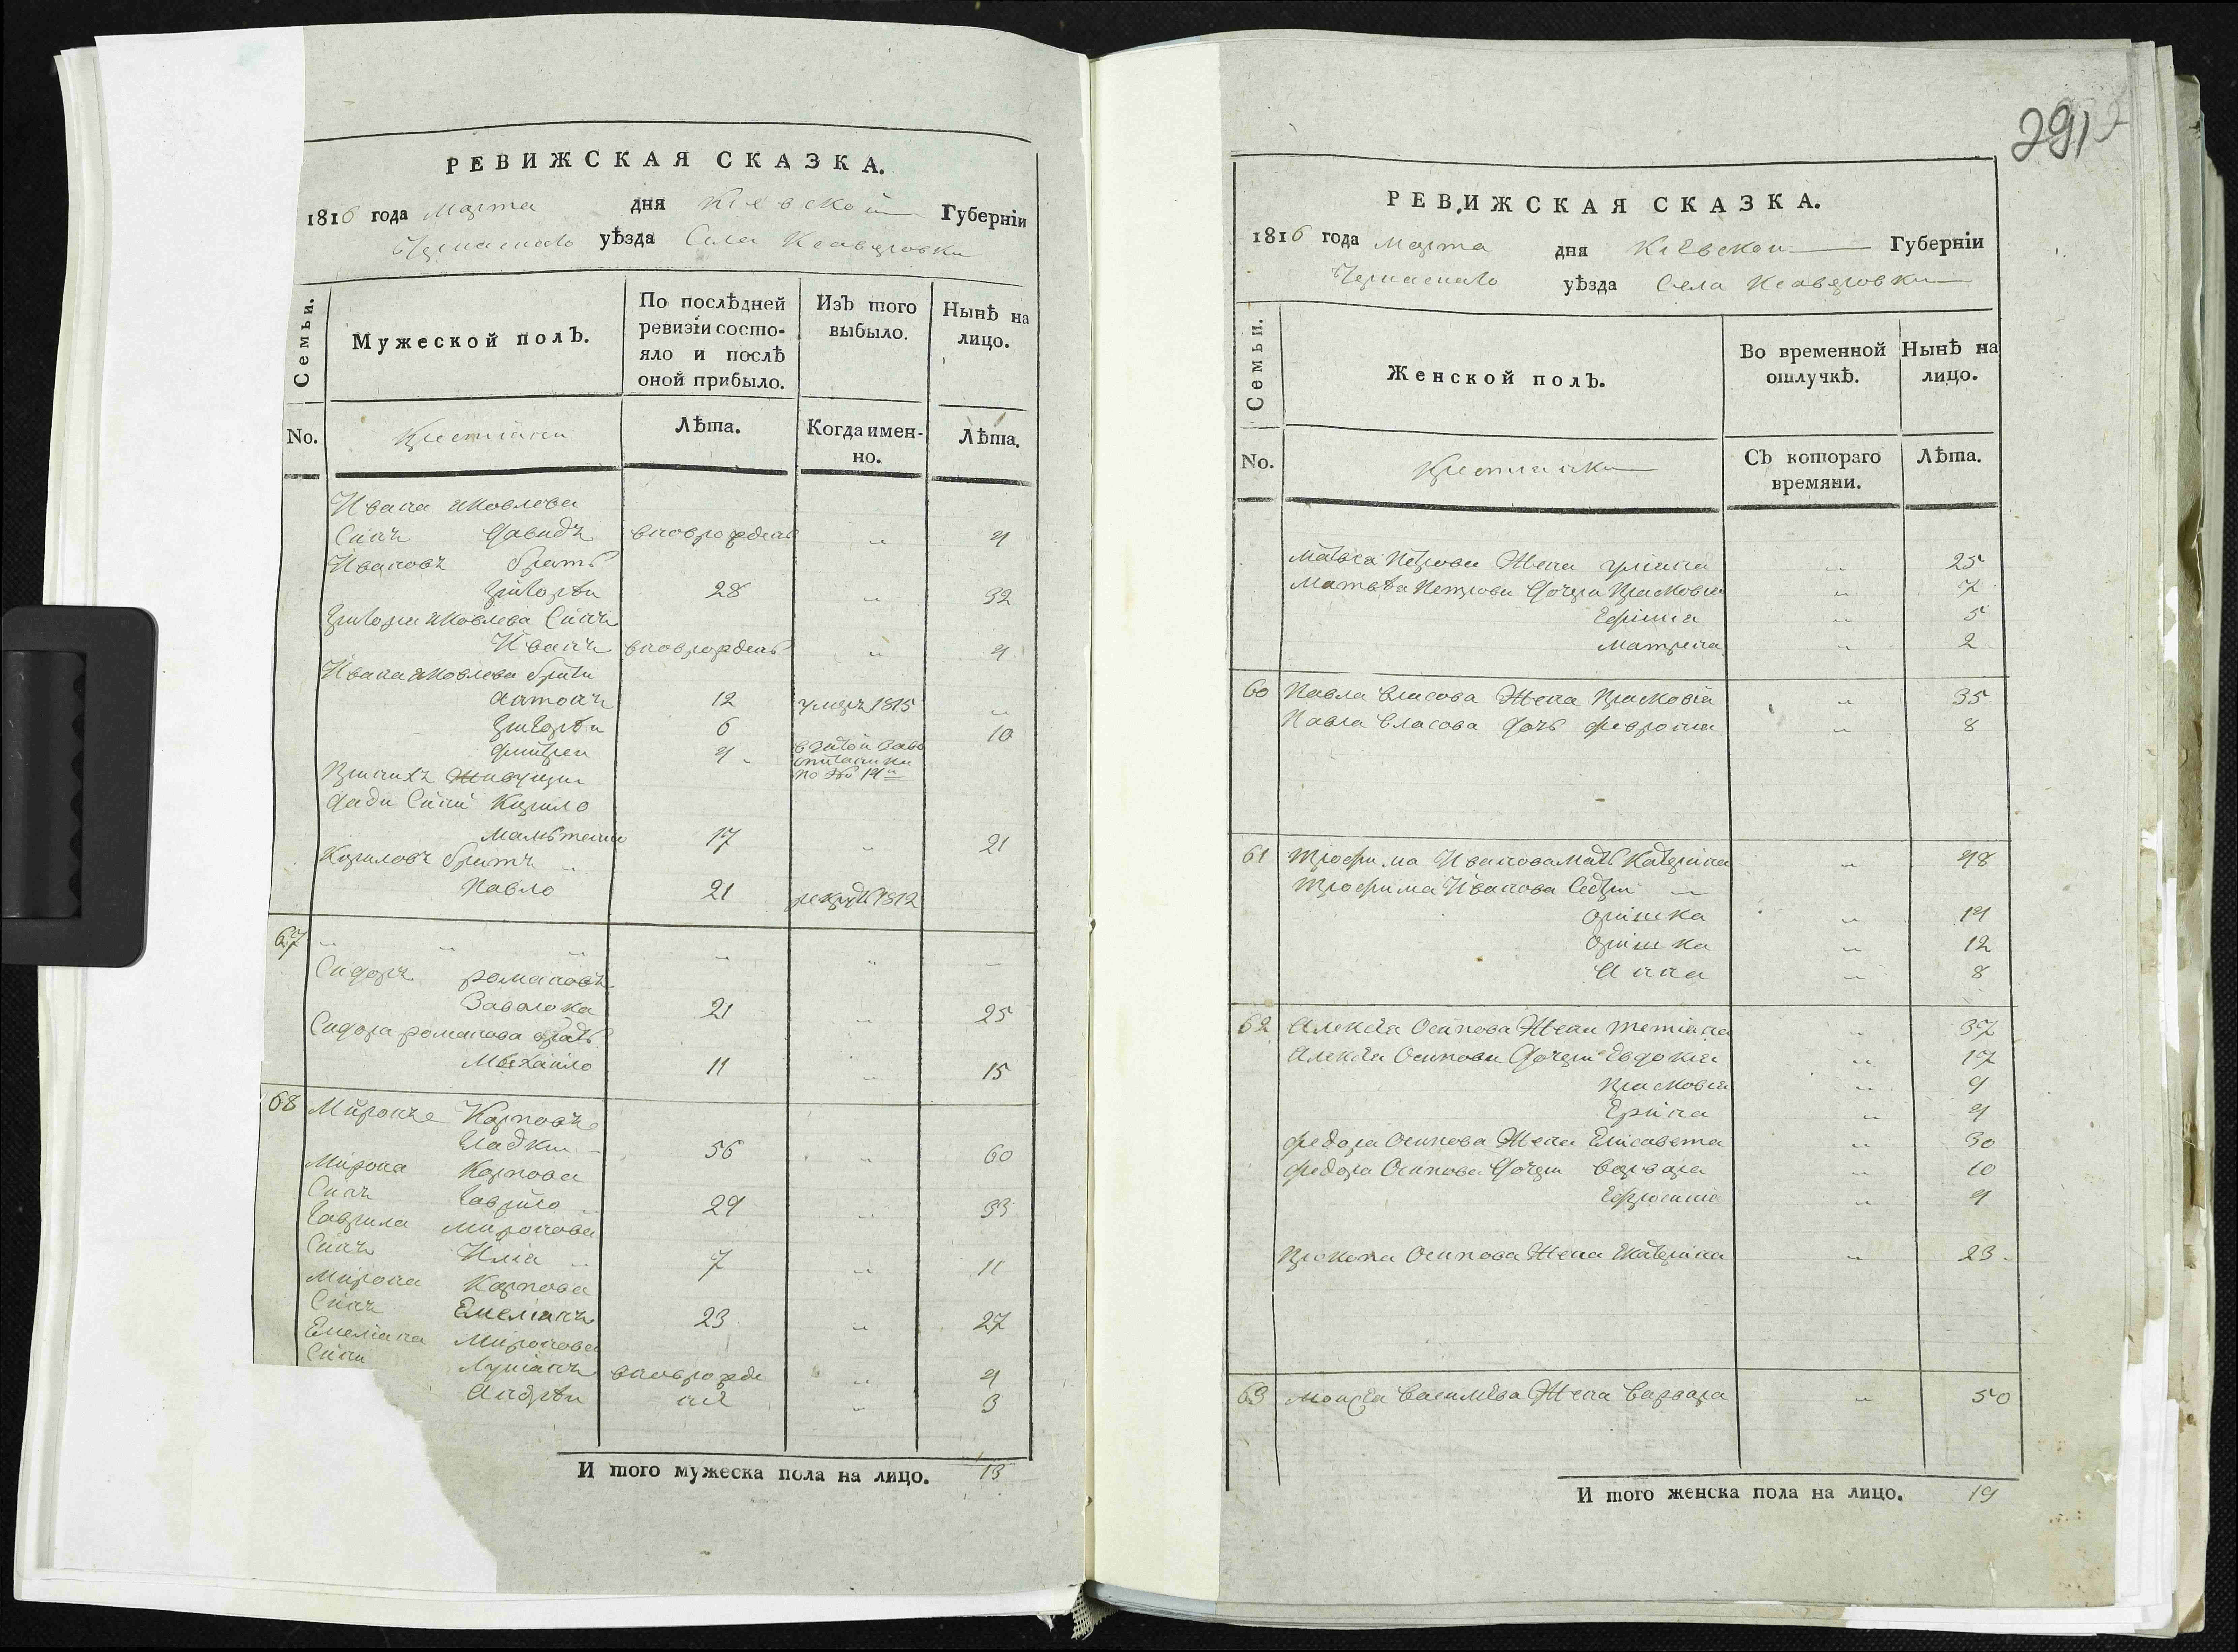 РЕВИЖСКАЯ СКАЗКА.
1816 года Марта дня Кіевской Губерніи
Черкаскаго уѣзда Села Ксаверовки
Семьи.
Мужеской полъ.
По послѣдней ревизіи состояло и послѣ оной прибыло.
Изъ того выбыло.
Нынѣ на лицо.
No. Крестіани Лѣта. Когда именно. Лѣта.
Ивана Яковлева
Синъ Давидъ вноврожденъ " 4
Ивановъ братъ
Григорѣй 28 " 32
Григорія Яковлева Синъ
Иванъ вноврожденъ " 4
Ивана Яковлева брати
Антонъ 12 умеръ 1815 "
Григорѣй 6 10
Дмитрей 4
Кирило
17 " 21
Кириловъ братъ "
Павло 21 рекрутъ 1812
67 " " " " " "
Сидоръ романовъ
Заволока 21 " 25
Сидора романова братъ
Михайло 11 " 15
68 Миронъ Карповъ
Гладкий 56 " 60
Мирона Карпова
Синъ Гаврило 29 " 33
Гаврила Миронова
Синъ Илія 7 " 11
Мирона Карпова
Синъ Емеліанъ 23 " 27
Емеліана Миронова
Сини Лукіанъ вноврожде " 4
Андрѣй ніе " 3
И того мужеска пола на лицо. 13
291
РЕВИЖСКАЯ СКАЗКА.
1816 года Марта дня Кіевской Губерніи
Черкаскаго уѣзда Села Ксаверовки
Семьи.
Женской полъ.
Во временной отлучкѣ.
Нынѣ на лицо.
No. Крестіанки Съ котораго времяни. Лѣта.
Матвея Петрова Жена уліяна " 25
Матвѣа Петрова Дочери Прасковія " 7
Ефимія " 5
Матрена " 2
60 Павла Власова Жена Прасковія " 35
Павла Власова дочь феврония " 8
61 Трофима Иванова Мать Катерина " 48
Трофима Иванова Сестри "
Оришка " 14
Оришка " 12
Анна " 8
62 Алексѣа Осипова Жена Тетіана " 37
Алексѣа Осипова Дочери Евдокія " 17
Прасковія " 9
Ерина " 4
федора Осипова Жена Елисавета " 30
федора Осипова Дочери Варвара " 10
Ефросинія " 4
Прокопа Осипова Жена Екатерина " 23
63 Моисѣа Василіева Жена Варвара " 50
И того женска пола на лицо. 19